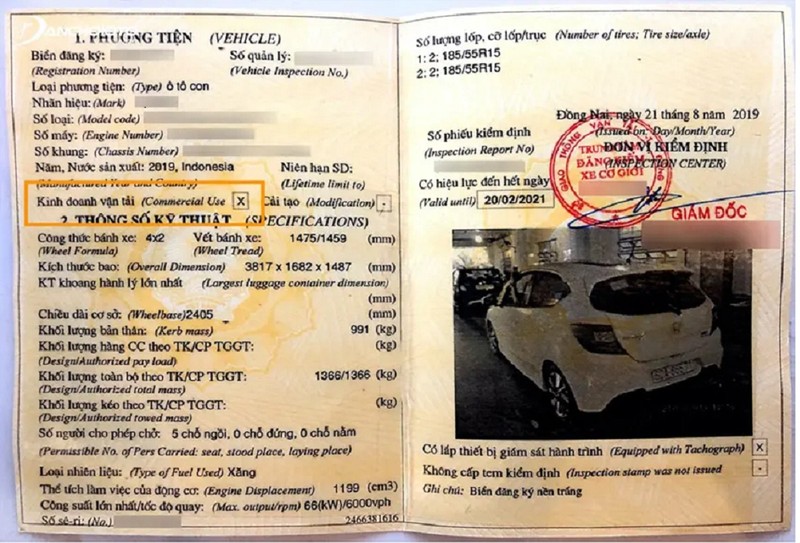 1. PHƯƠNG TIỆN (VEHICLE)
Biển đăng ký:
(Registration Number)
Số quản lý:
(Vehicle Inspection No.)
Loại phương tiện: (Type) Ô tô con
Nhãn hiệu: (Mark)
Số loại: (Model code)
Số máy: (Engine Number)
Số khung: (Chassis Number)
Năm, Nước sản xuất: 2019, Indonesia
(Manufactured Year and Country)
Niên hạn SD:
(Lifetime limit to)
Kinh doanh vận tải (Commercial Use) X
Cải tạo (Modification) -
2. THÔNG SỐ KỸ THUẬT (SPECIFICATIONS)
Công thức bánh xe: 4x2
(Wheel Formula)
Vết bánh xe: 1475/1459 (mm)
(Wheel Tread)
Kích thước bao: (Overall Dimension) 3817 x 1682 x 1487 (mm)
KT khoang hành lý lớn nhất (Largest luggage container dimension)
(mm)
Chiều dài cơ sở: (Wheelbase) 2405 (mm)
Khối lượng bản thân: (Kerb mass) 991 (kg)
Khối lượng hàng CC theo TK/CP TGGT: (kg)
(Design/Authorized pay load)
Khối lượng toàn bộ theo TK/CP TGGT: 1366/1366 (kg)
(Design/Authorized total mass)
Khối lượng kéo theo TK/CP TGGT: (kg)
(Design/Authorized towed mass)
Số người cho phép chở: 5 chỗ ngồi, 0 chỗ đứng, 0 chỗ nằm
(Permissible No. of Pers Carried: seat, stood place, laying place)
Loại nhiên liệu: (Type of Fuel Used) Xăng
Thể tích làm việc của động cơ: (Engine Displacement) 1199 (cm3)
Công suất lớn nhất/tốc độ quay: (Max. output/rpm) 66(kW)/6000vph
Số sê-ri: (No.)
2466381616
Số lượng lốp, cỡ lốp/trục (Number of tires; Tire size/axle)
1: 2; 185/55R15
2: 2; 185/55R15
Đồng Nai, ngày 21 tháng 8 năm 2019
(Issued on: Day/Month/Year)
Số phiếu kiểm định
(Inspection Report No)
ĐƠN VỊ KIỂM ĐỊNH
(INSPECTION CENTER)
TRUNG TÂM
ĐĂNG KIỂM
XE CƠ GIỚI
Có hiệu lực đến hết ngày
(Valid until) 20/02/2021
GIÁM ĐỐC
Có lắp thiết bị giám sát hành trình (Equipped with Tachograph) X
Không cấp tem kiểm định (Inspection stamp was not issued -
Ghi chú: Biển đăng ký nền trắng